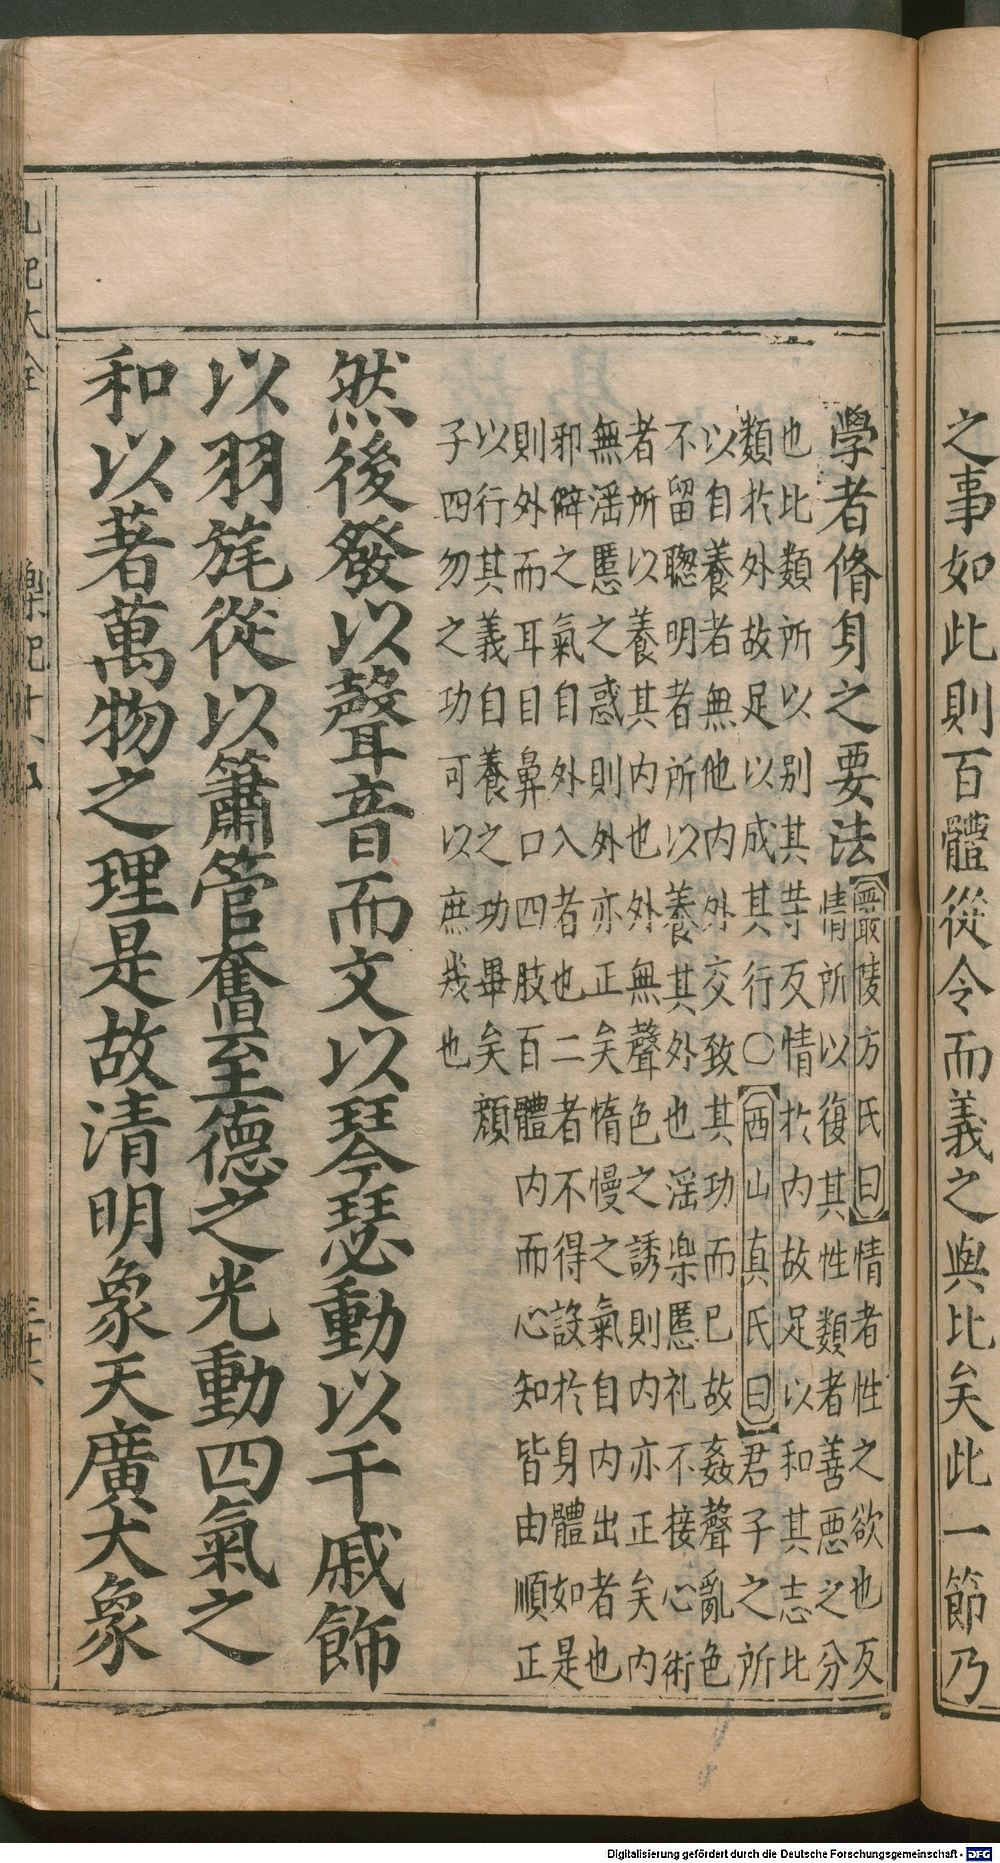 之事如此則百體從令而義之與比矣此一節乃
學者脩身之要法
嚴陵方氏曰情者性之欲也反
情所以復其性類者善惡之分
也比類所以別其等反情於內故足以和其志比
類於外故足以成其行○西山真氏曰君子之所
以自養者無他內外交致其功而已故姦聲亂色
不留聰明者所以養其外也淫樂慝礼不接心術
者所以養其內也外無聲色之誘則內亦正矣內
無淫慝之惑則外亦正矣惰慢之氣自內出者也
邪僻之氣自外入者也二者不得設於身體如是
則外而耳目鼻口四肢百體內而心知皆由順正
以行其義自養之功畢矣顔
子四勿之功可以庶幾也
然後發以聲音而文以琴瑟動以干戚飾
以羽旄從以簫管奮至德之光動四氣之
和以著萬物之理是故清明象天廣大象
Digitalisierung gefördert durch die Deutsche Forschungsgemeinschaft - DFG